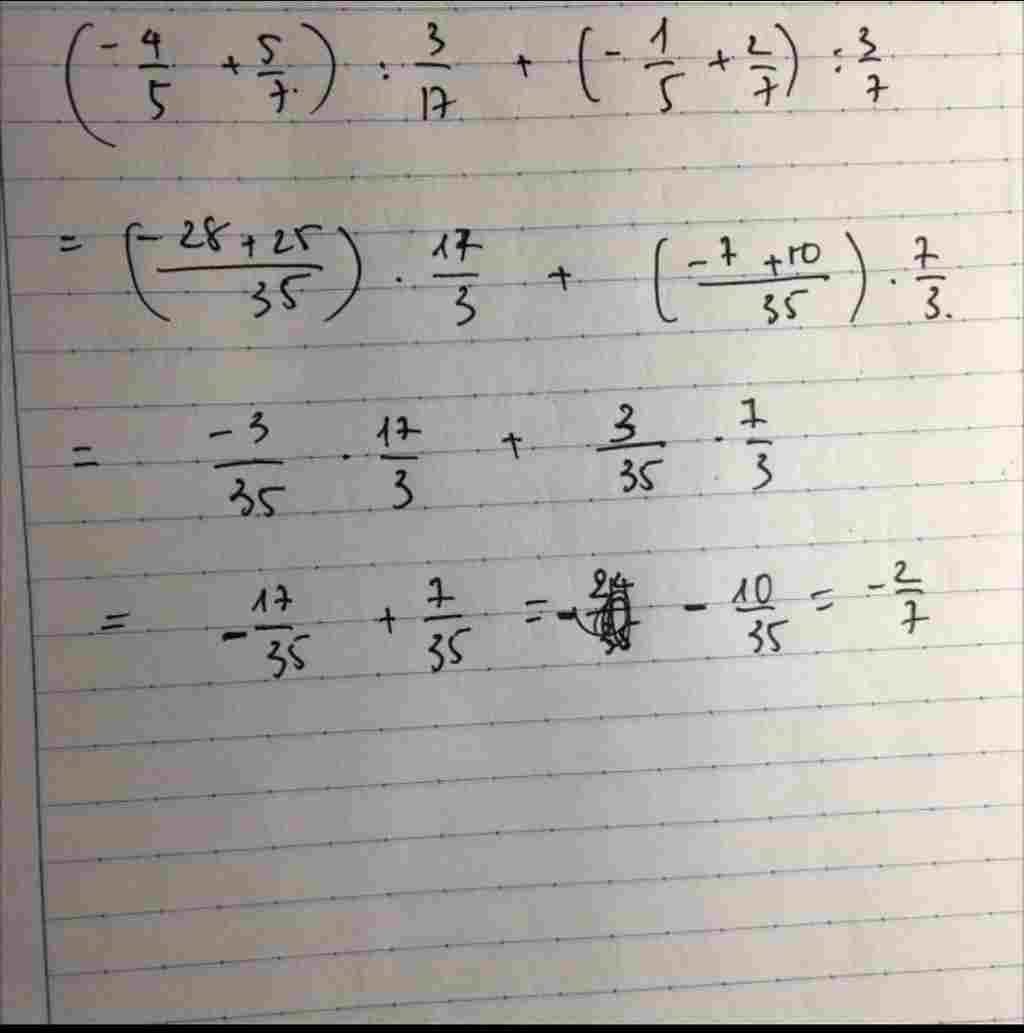 (-4/5 + 5/7) : 3/17 + (-1/5 + 2/7) : 3/7
= (-28+25/35) . 17/3 + (-7+10/35) . 7/3.
= -3/35 . 17/3 + 3/35 . 7/3
= -17/35 + 7/35 = - 10/35 = -2/7